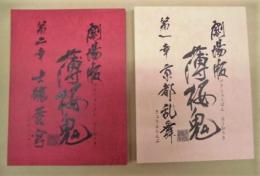 劇場版
薄桜鬼
第二章 士魂蒼穹
劇場版
薄桜鬼
第一章 京都乱舞